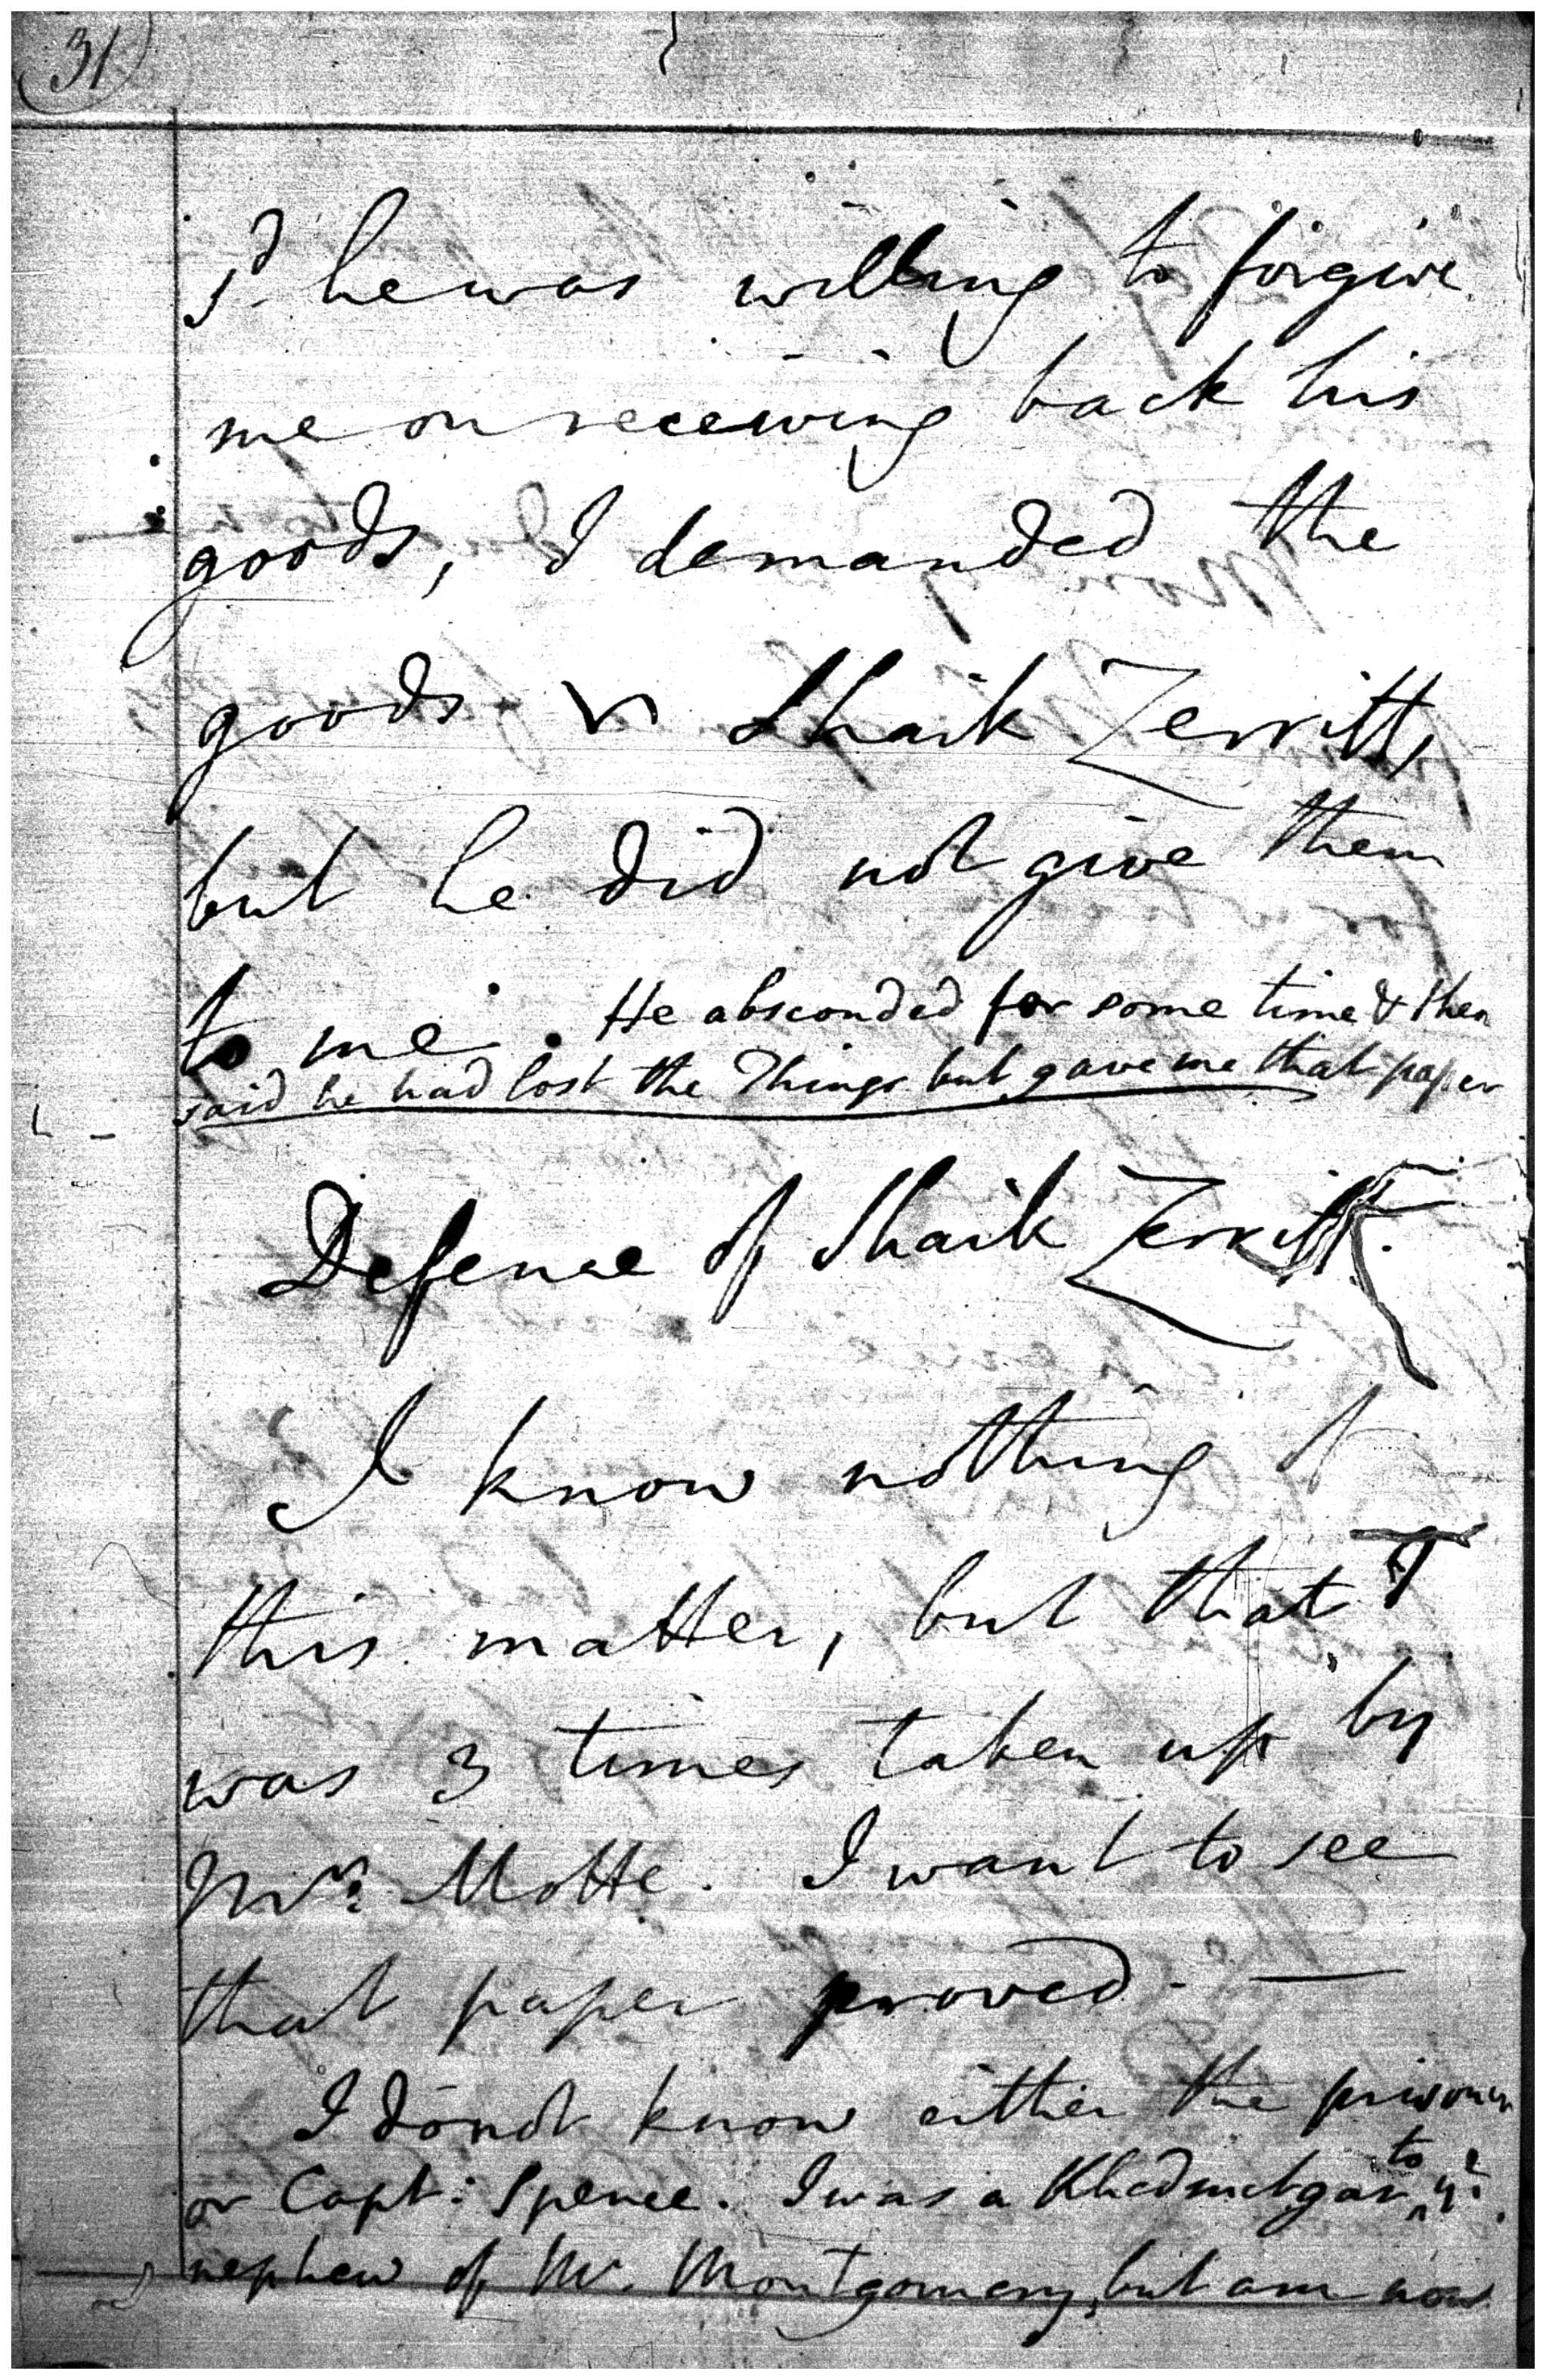 31
sd. he was willing to forgive
me on receiving back his
goods, I demanded the
goods Shaik Zerritt,
but he did not give them
to me. He absconded for some time & then
said he had lost the Things but gave me that paper
Defence of Shaik Zerritt.
I know nothing of
this matter, but that I
was 3 times taken up by
Mr. Motte. I want to see
that paper proved. —
I do not know either the prisoner
or Capt: Spence. I was a Khedmutgar to ye.
nephew of Mr. Montgomery, but am now